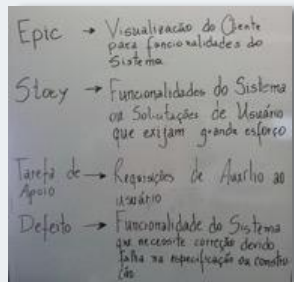 Epic → Visualização do Cliente
para funcionalidades do
Sistema
Story → Funcionalidades do Sistema
ou Solicitações de Usuário
que exijam grande esforço
Tarefa de → Requisições de Auxílio ao
Apoio usuário
Defeito → Funcionalidade do Sistema
que necessite correção devido
falha na especificação ou constru-
ção